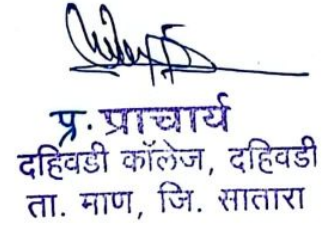 प्र. प्राचार्य
दहिवडी कॉलेज, दहिवडी
ता. माण, जि. सातारा